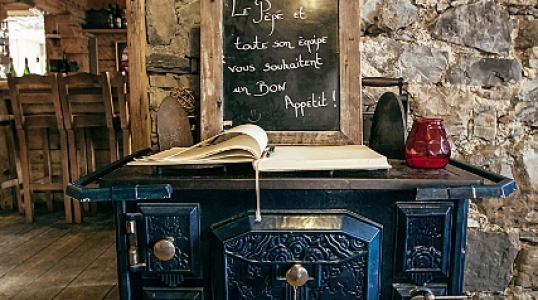 Le Pépé et
toute son équipe
vous souhaitent
un BON
Appétit !